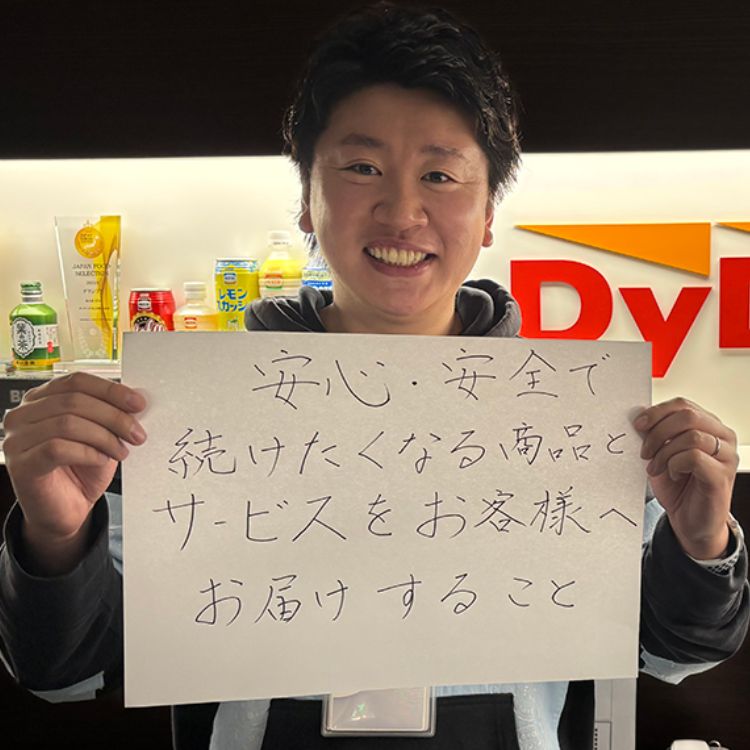 JAPAN FOOD
SELECTION
グランプリ
レモン
Dy
安心・安全で
続けたくなる商品と
サービスをお客様へ
お届けすること